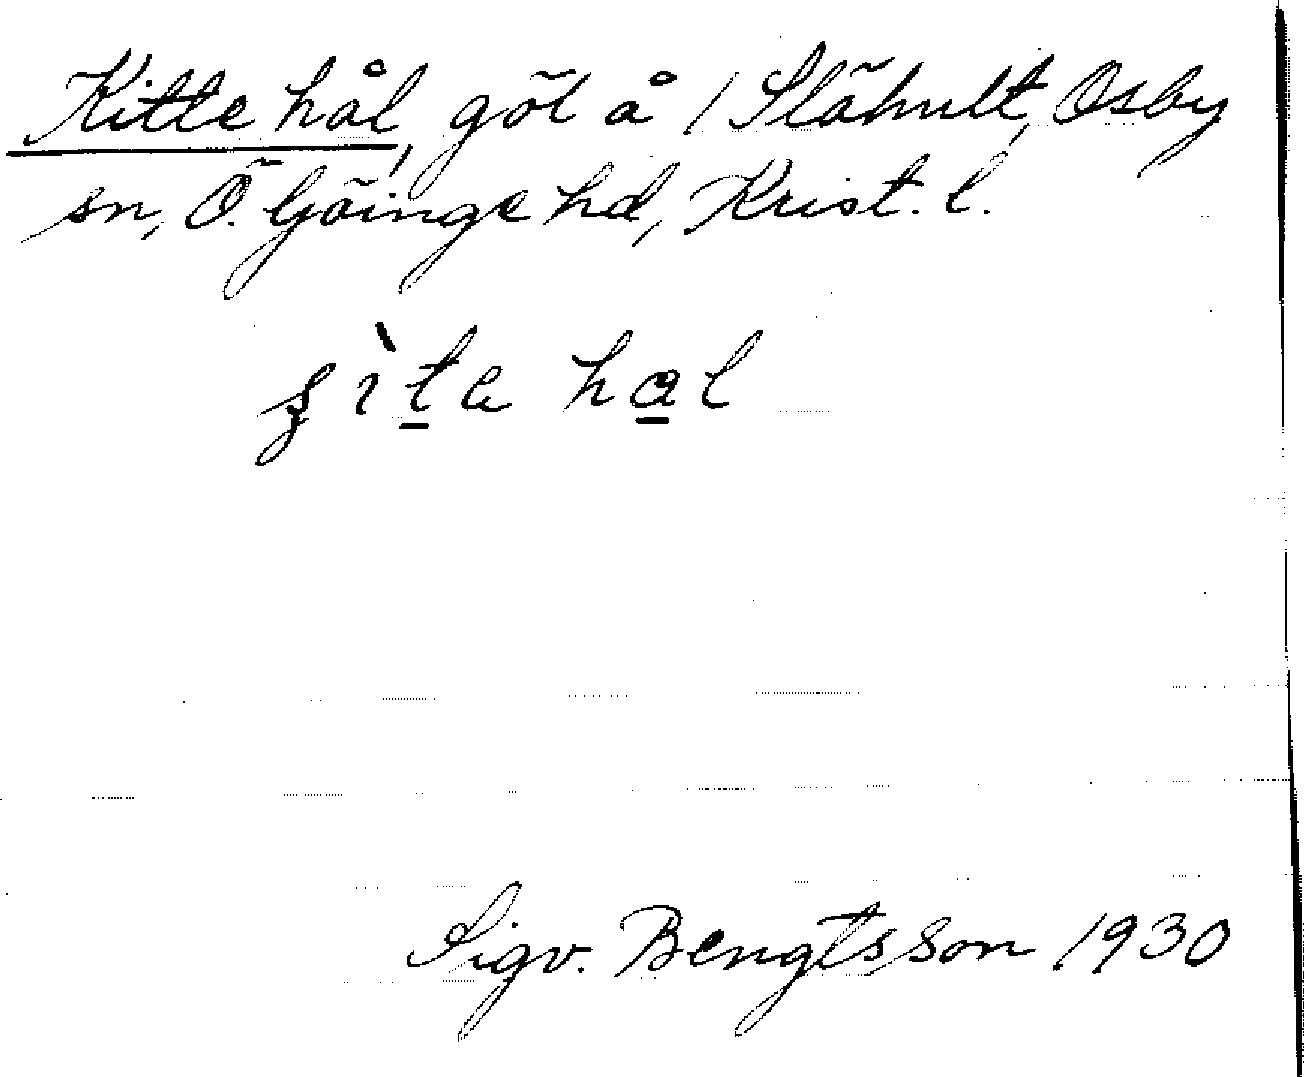 Kitte hål, göl å 1 Slähult, Osby
sn, Ö. Göinge hd, Krist. l.
hal
Sigv. Bengtsson 1930